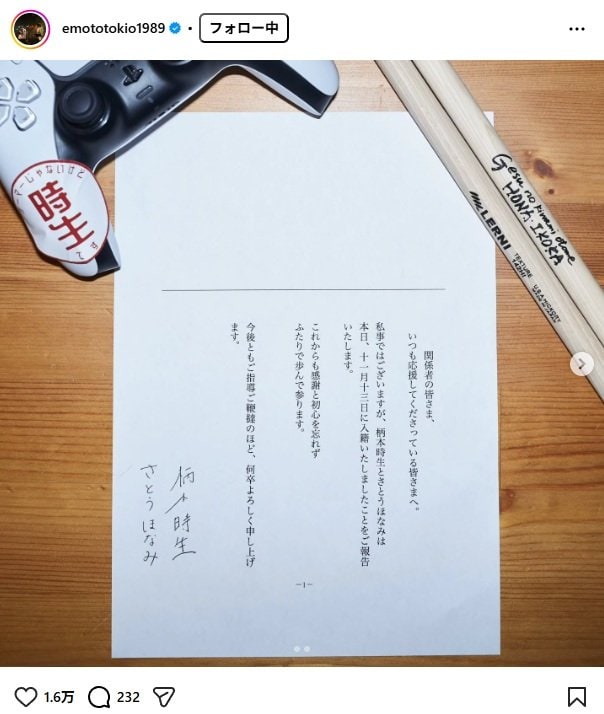 emototokio1989
フォロー中
ーマーじゃないけど
時生
です
Gesu no kiwami otome
HONA・IKOKA
LERNI
TEXTURE
関係者の皆さま、
いつも応援してくださっている皆さまへ。
私事ではございますが、柄本時生とさとうほなみは
本日、十一月十三日に入籍いたしましたことをご報告
いたします。
これからも感謝と初心を忘れず
ふたりで歩んで参ります。
今後ともご指導ご鞭撻のほど、何卒よろしく申し上げ
ます。
柄本時生
さとうほなみ
－1－
1.6万
232